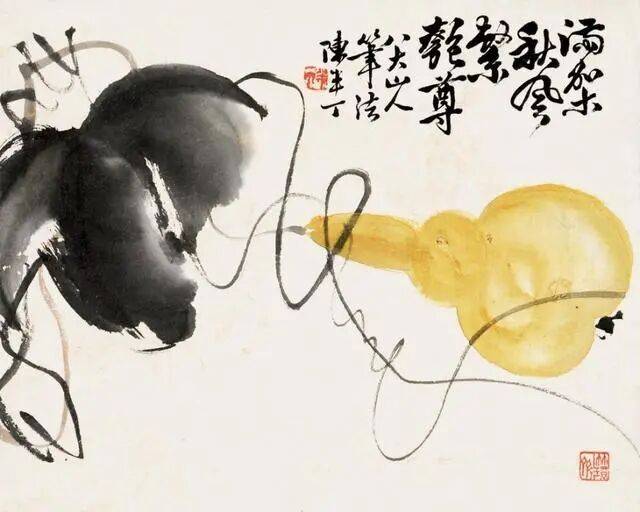 滿架
秋風
繫
匏尊
八大山人
筆法
陳半丁